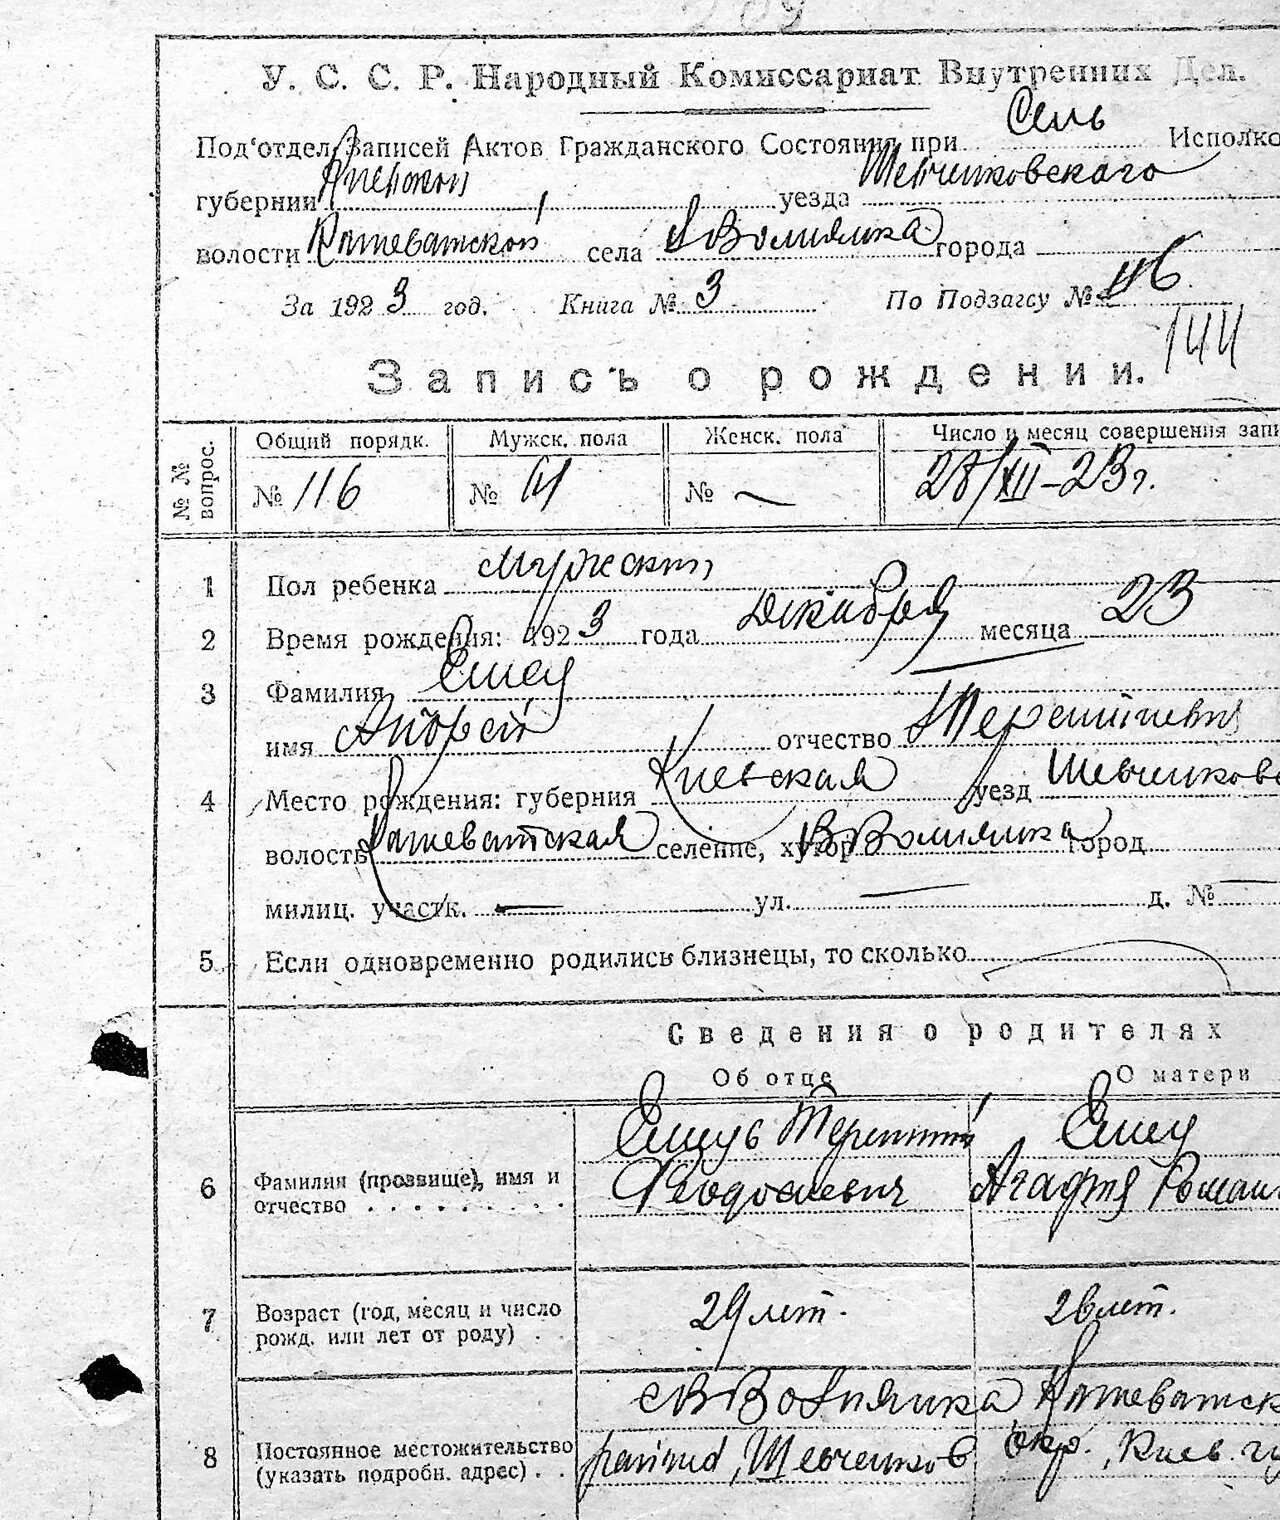 209
У. С. С. Р. Народный Комиссариат Внутренних Дел.
Под'отдел Записей Актов Гражданского Состояния при Сель Исполко
губернии Киевской уезда Шевченковскаго
волости Кошеватской села В Вольнянка города
За 1923 год. Книга № 3 По Подзагсу № 116
144
Запись о рождении.
№ № вопрос.
Общий порядк. Мужск. пола Женск. пола Число и месяц совершения запи
№ 116 № 61 № — 28/XII–23 г.
1 Пол ребенка мужской
2 Время рождения: 1923 года Декабря месяца 23
3 Фамилия Емец
имя Андрей отчество Терентиевич
4 Место рождения: губерния Киевская уезд Шевченковс
волость Кошеватская селение, хутор В Вольнянка город
милиц. участк. — ул. — д. № —
5 Если одновременно родились близнецы, то сколько
Сведения о родителях
Об отце О матери
Емець Терентий Емец
6 Фамилия (прозвище), имя и отчество Феодосиевич Агафия Роман
7 Возраст (год, месяц и число рожд. или лет от роду) 29 лет. 26 лет.
с В Вольнянка Кошеватск
8 Постоянное местожительство (указать подробн. адрес) район, Шевченков окр., Киев. гу